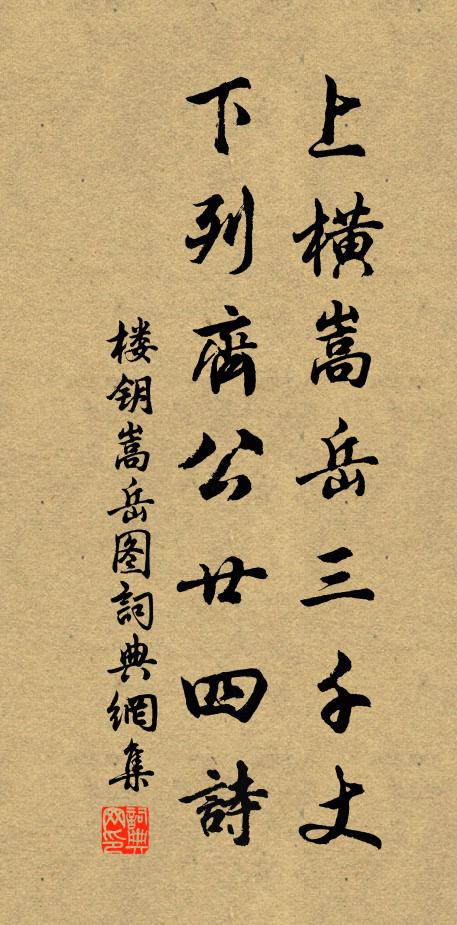 上橫嵩岳三千丈
下列齊公廿四詩
楼钥嵩岳图詞典網集
詞典网印